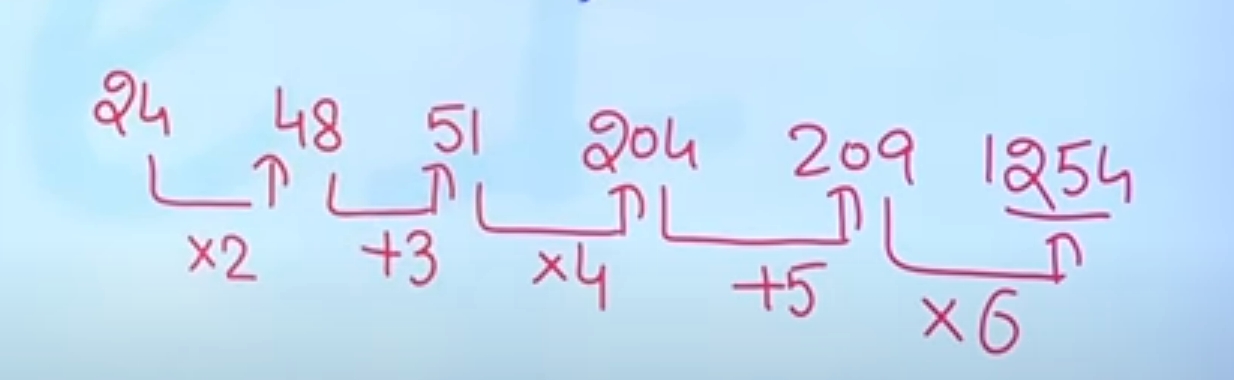 24 48 51 204 209 1254
×2 +3 ×4 +5 ×6